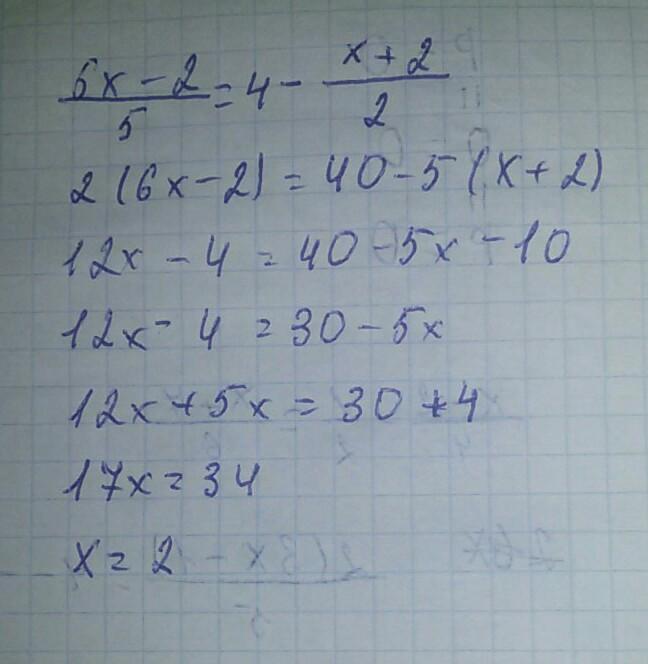 6x-2/5 = 4 - x+2/2
2(6x-2) = 40-5(x+2)
12x - 4 = 40 - 5x - 10
12x - 4 = 30 - 5x
12x + 5x = 30 + 4
17x = 34
x = 2